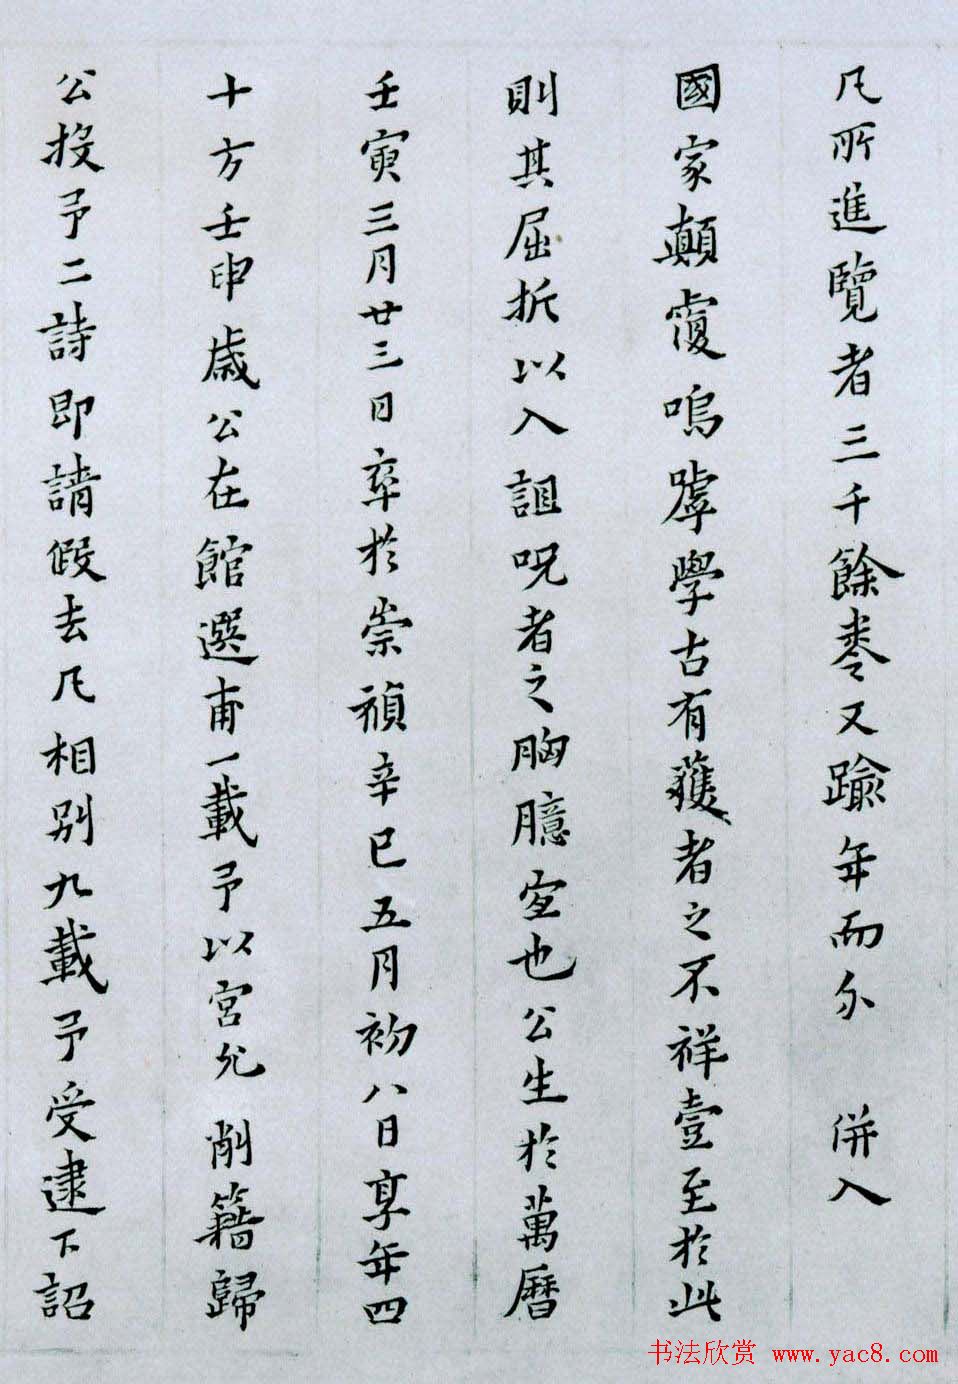 凡所進覽者三千餘卷又踰年而分 併入
國家顛覆嗚嘑學古有獲者之不祥壹至於此
則其屈折以入詛呪者之胸臆宜也公生於萬曆
壬寅三月廿三日卒於崇禎辛巳五月初八日享年四
十方壬申歲公在館選甫一載予以宮允 削籍歸
公投予二詩即請假去凡相別九載予受逮下詔
书法欣赏 www.yac8.com